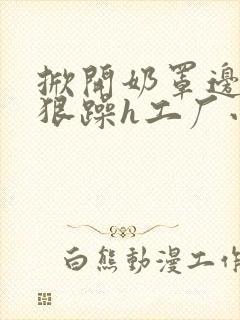 掀開奶罩邊
狠躁h工厂
白熊動漫工作